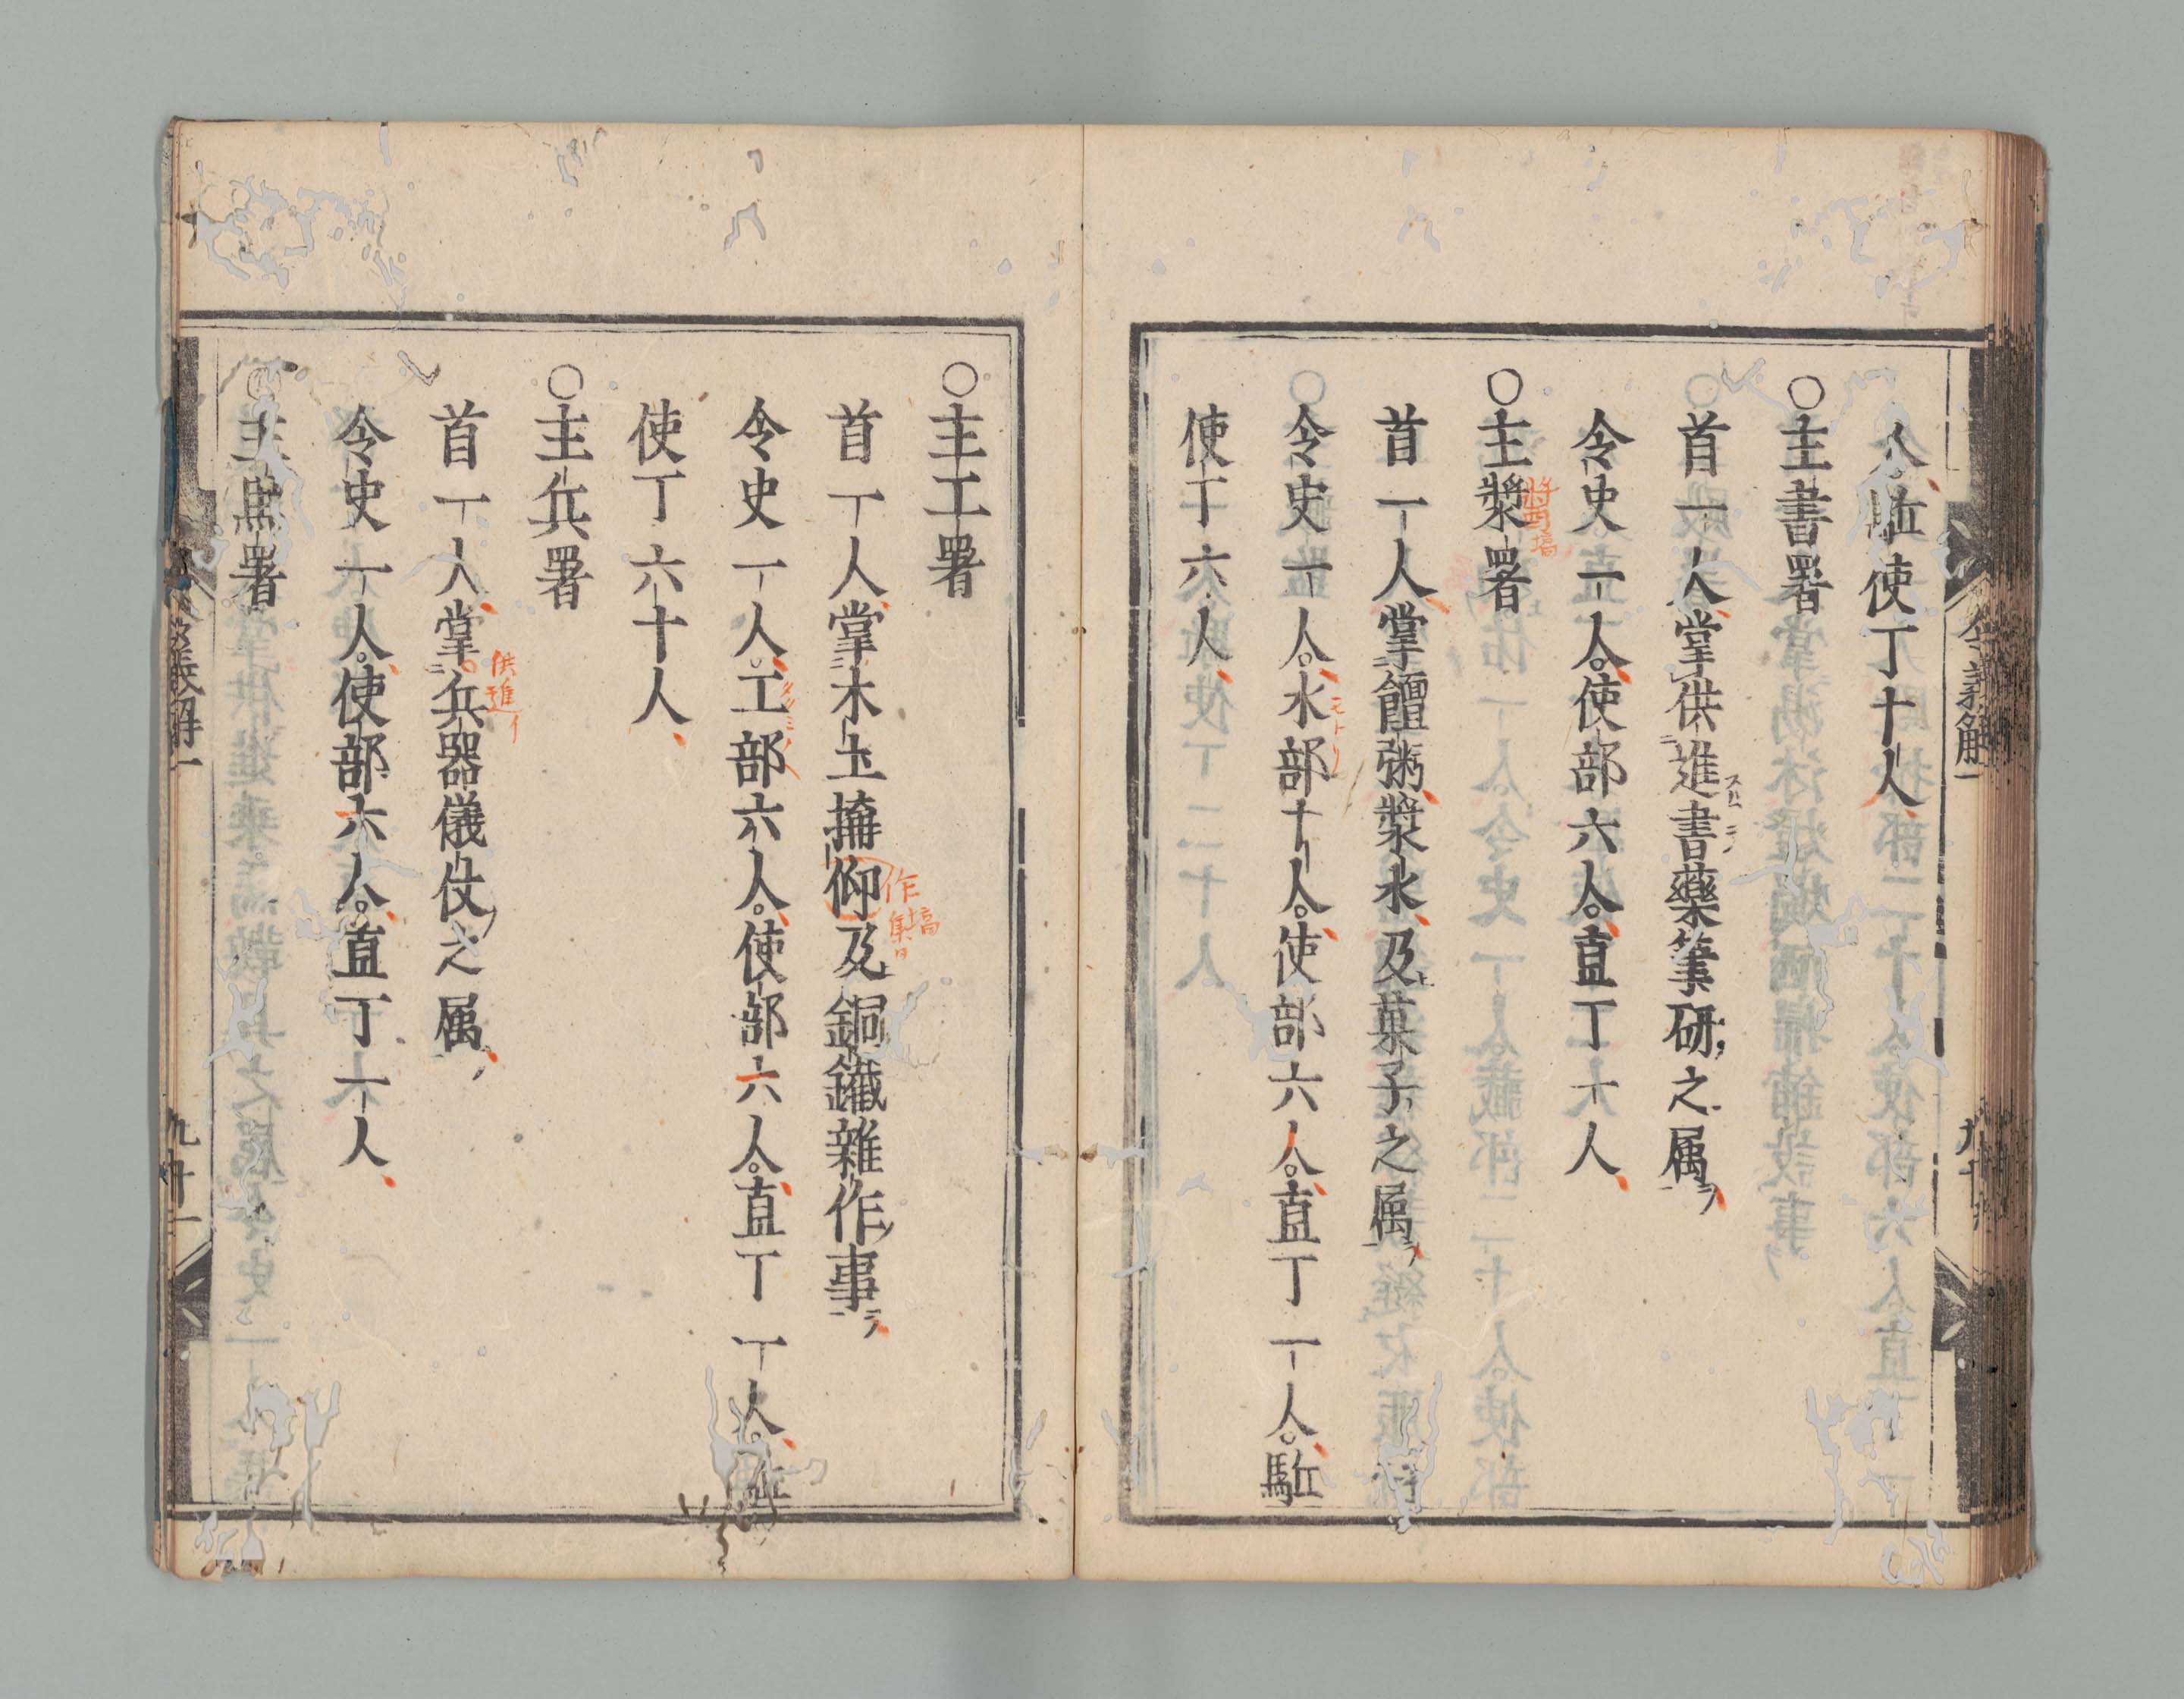 人駈使丁十人
〇主書署
首一人掌供進書藥筆研之属
令史一人使部六人直丁一人
〇主漿署
首一人掌饘粥漿水及菓子之属
令史一人水部十人使部六人直丁一人駈
使丁六人
〇主工署
首一人掌木土揥仰及銅鐵雜作事
令史一人工部六人使部六人直丁一人駈
使丁六十人
〇主兵署
首一人掌兵器儀仗之属
供進イ
令史一人使部六人直丁一人
主馬署
令義解一
九十
令義解一
九十一